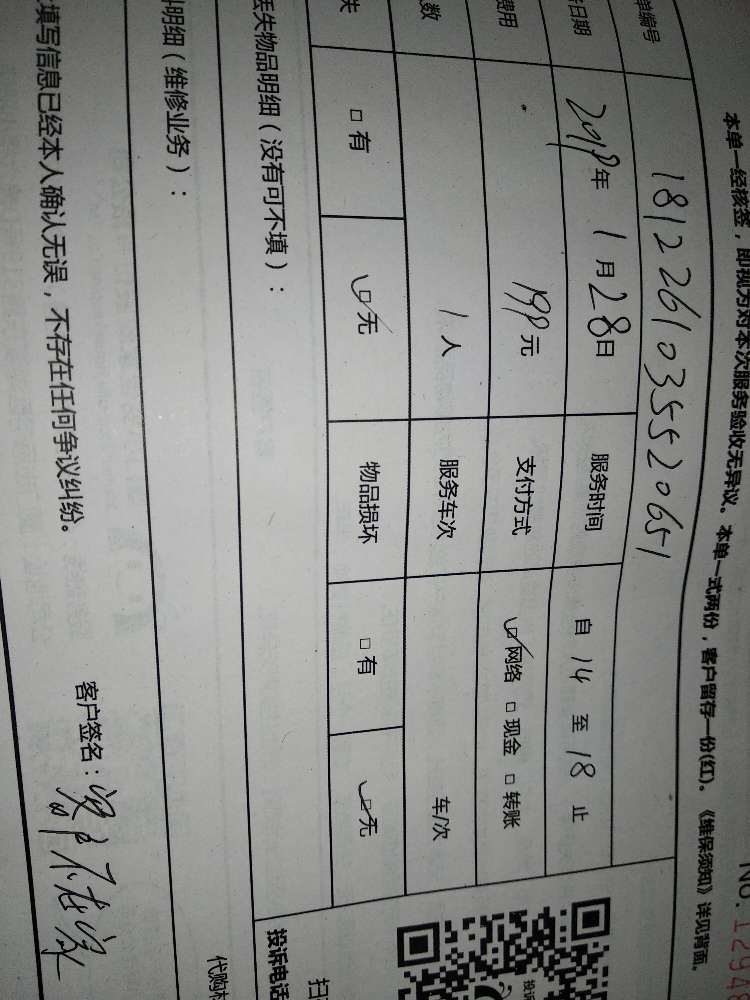 No.1294
本单一经核签，即视为对本次服务验收无异议。本单一式两份，客户留存一份(红)。《维保须知》详见背面。
单编号 181226103555520651
日期 2019年 1月28日 服务时间 自 14 至 18 止
费用 199元 支付方式 ☑网络 □现金 □转账
数 1人 服务车次 车/次
失 □有 ☑无 物品损坏 □有 ☑无
丢失物品明细（没有可不填）：
明细（维修业务）：
填写信息已经本人确认无误，不存在任何争议纠纷。
客户签名：
投诉电话
代购